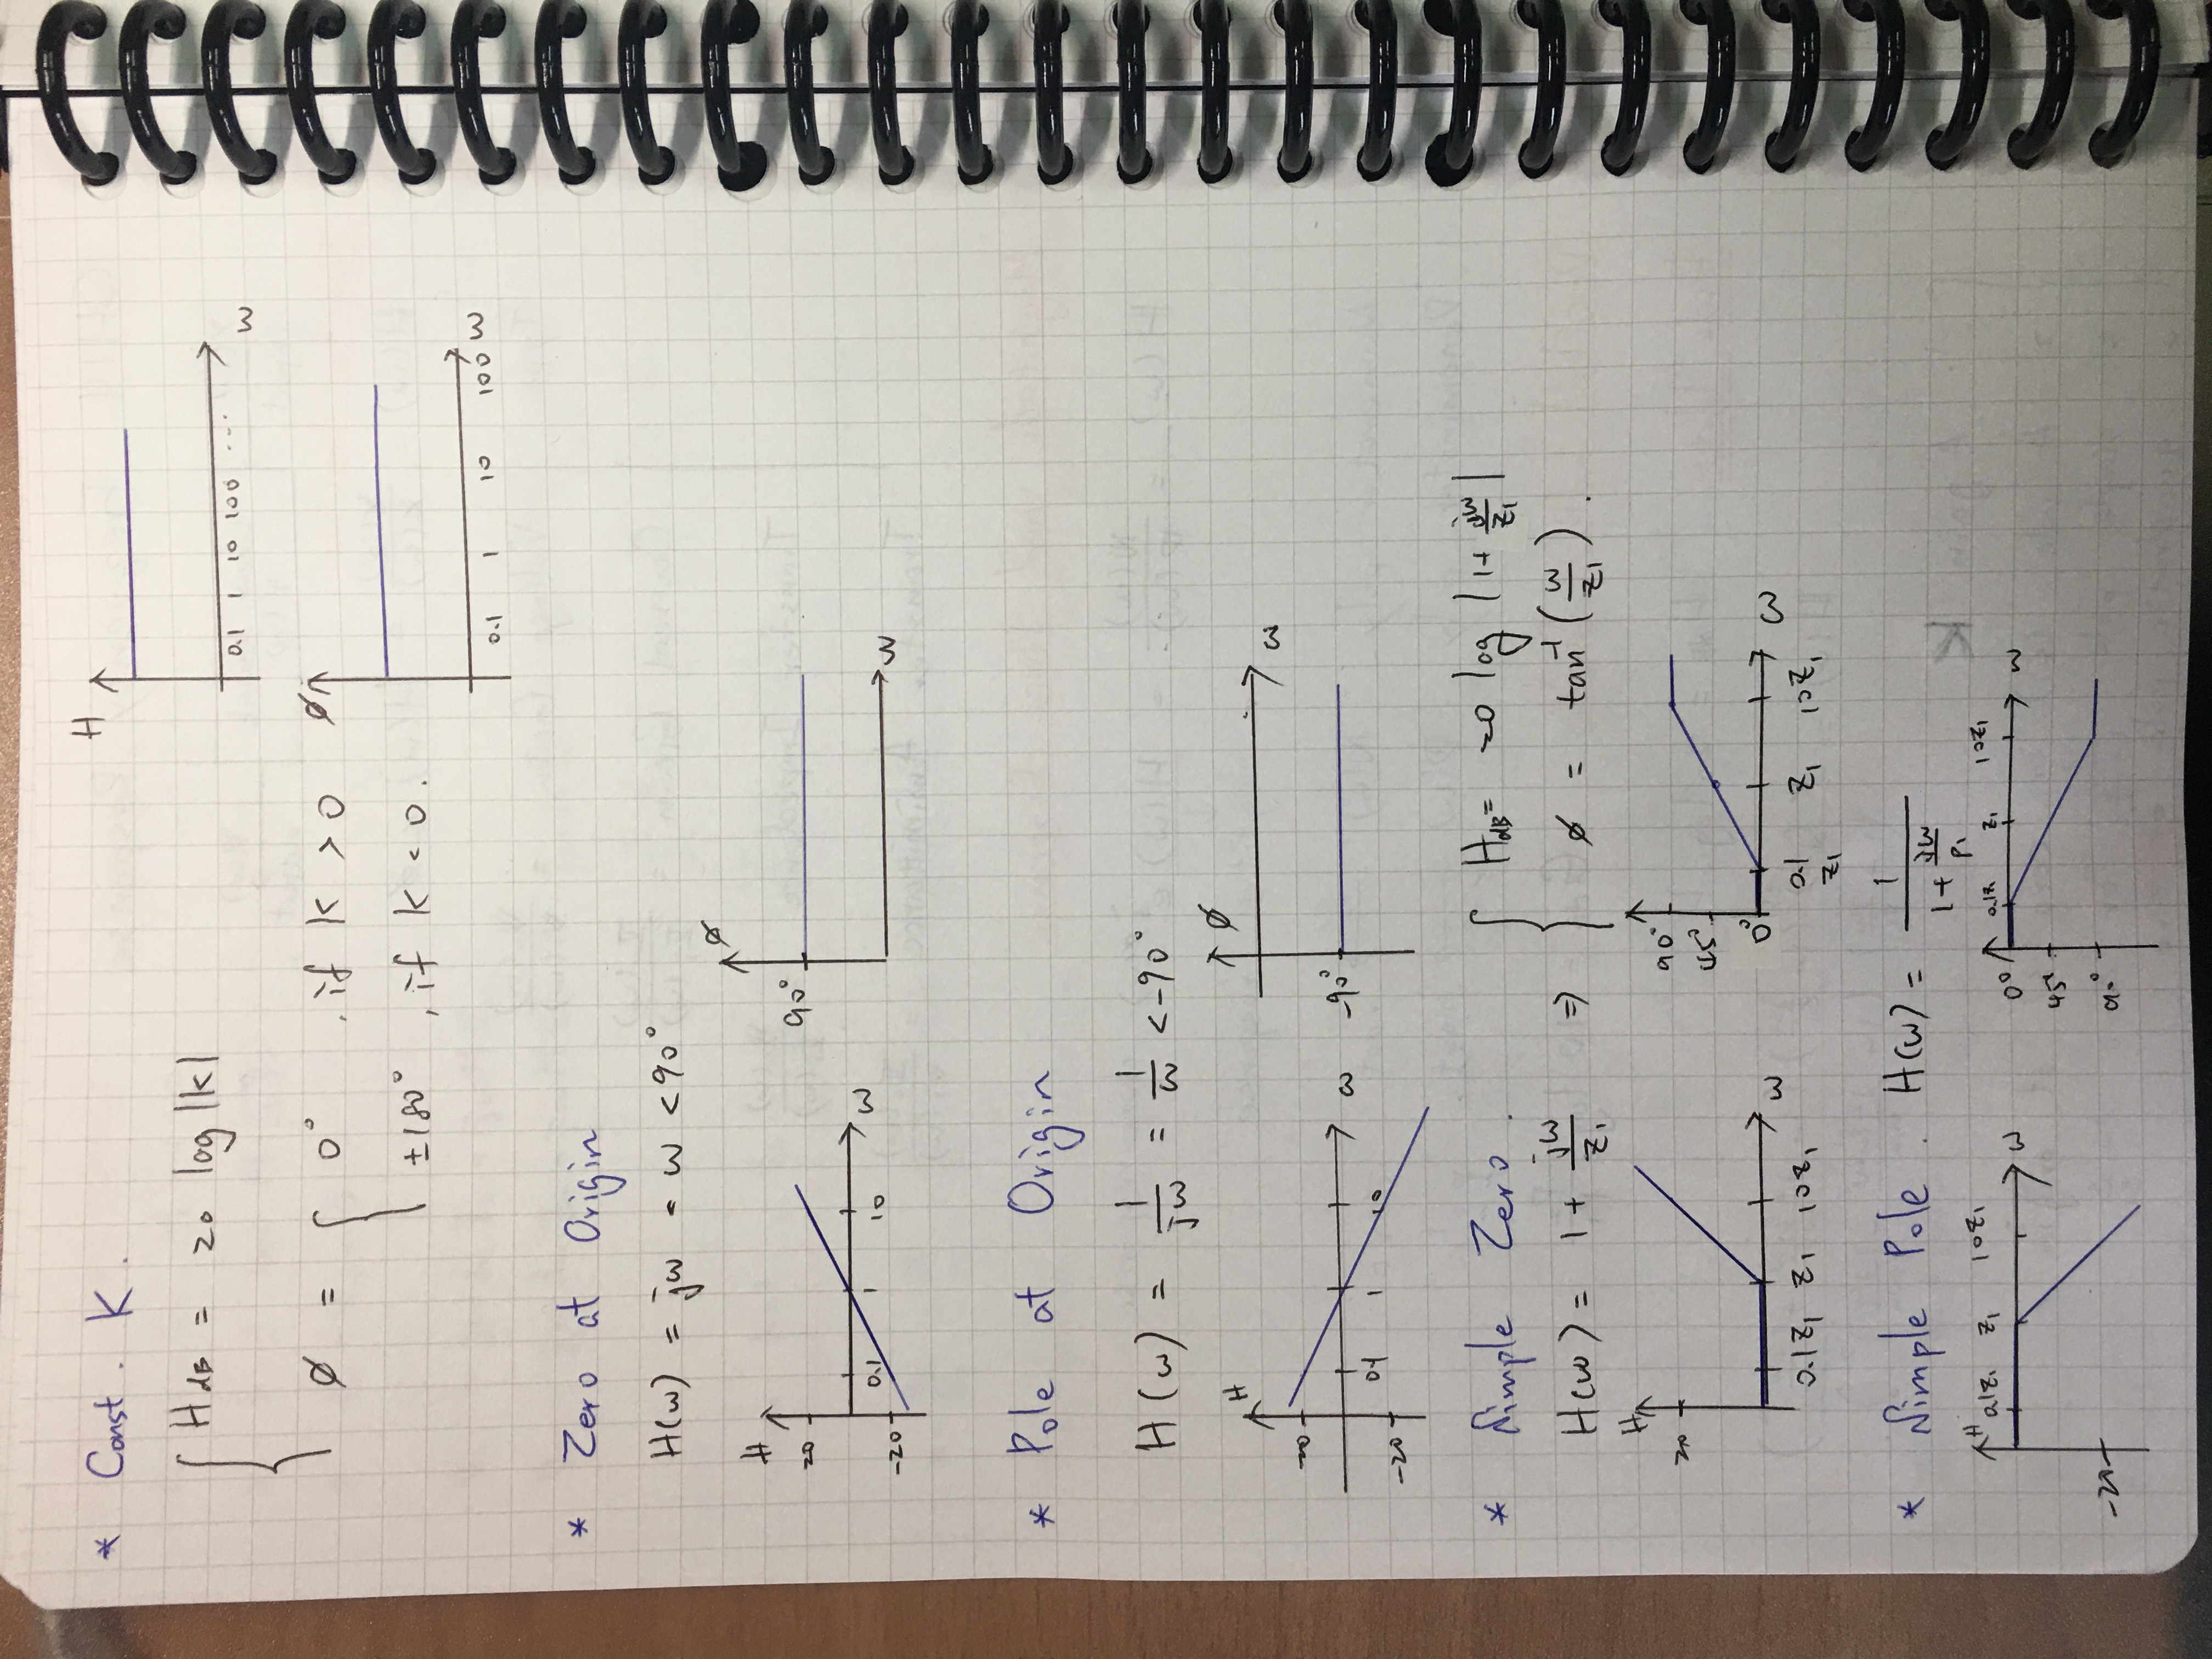 * Const. K.
H
HdB = 20 log|K|
0.1 1 10 100 ...
ω
φ = { 0° , if K > 0
±180° , if K < 0.
φ
0.1 1 10 100 ω
* Zero at Origin
H(ω) = jω = ω <90°
H
20
-20
0.1 1 10
ω
φ
90°
ω
* Pole at Origin
H(ω) = 1/jω = 1/ω <-90°
H
20
-20
0.1 1 10
ω
φ
ω
-90°
* Simple Zero.
H(ω) = 1 + jω/Z₁ ⇒ { HdB = 20 log |1 + jω/Z₁|
φ = tan⁻¹(ω/Z₁).
H
20
0.1Z₁ Z₁ 10Z₁
ω
90°
45°
0°
0.1Z₁ Z₁ 10Z₁
ω
* Simple Pole. H(ω) = 1/(1 + jω/P₁)
H 0.1Z₁ Z₁ 10Z₁
ω
-20
0° 0.1Z₁ Z₁ 10Z₁
ω
45°
90°